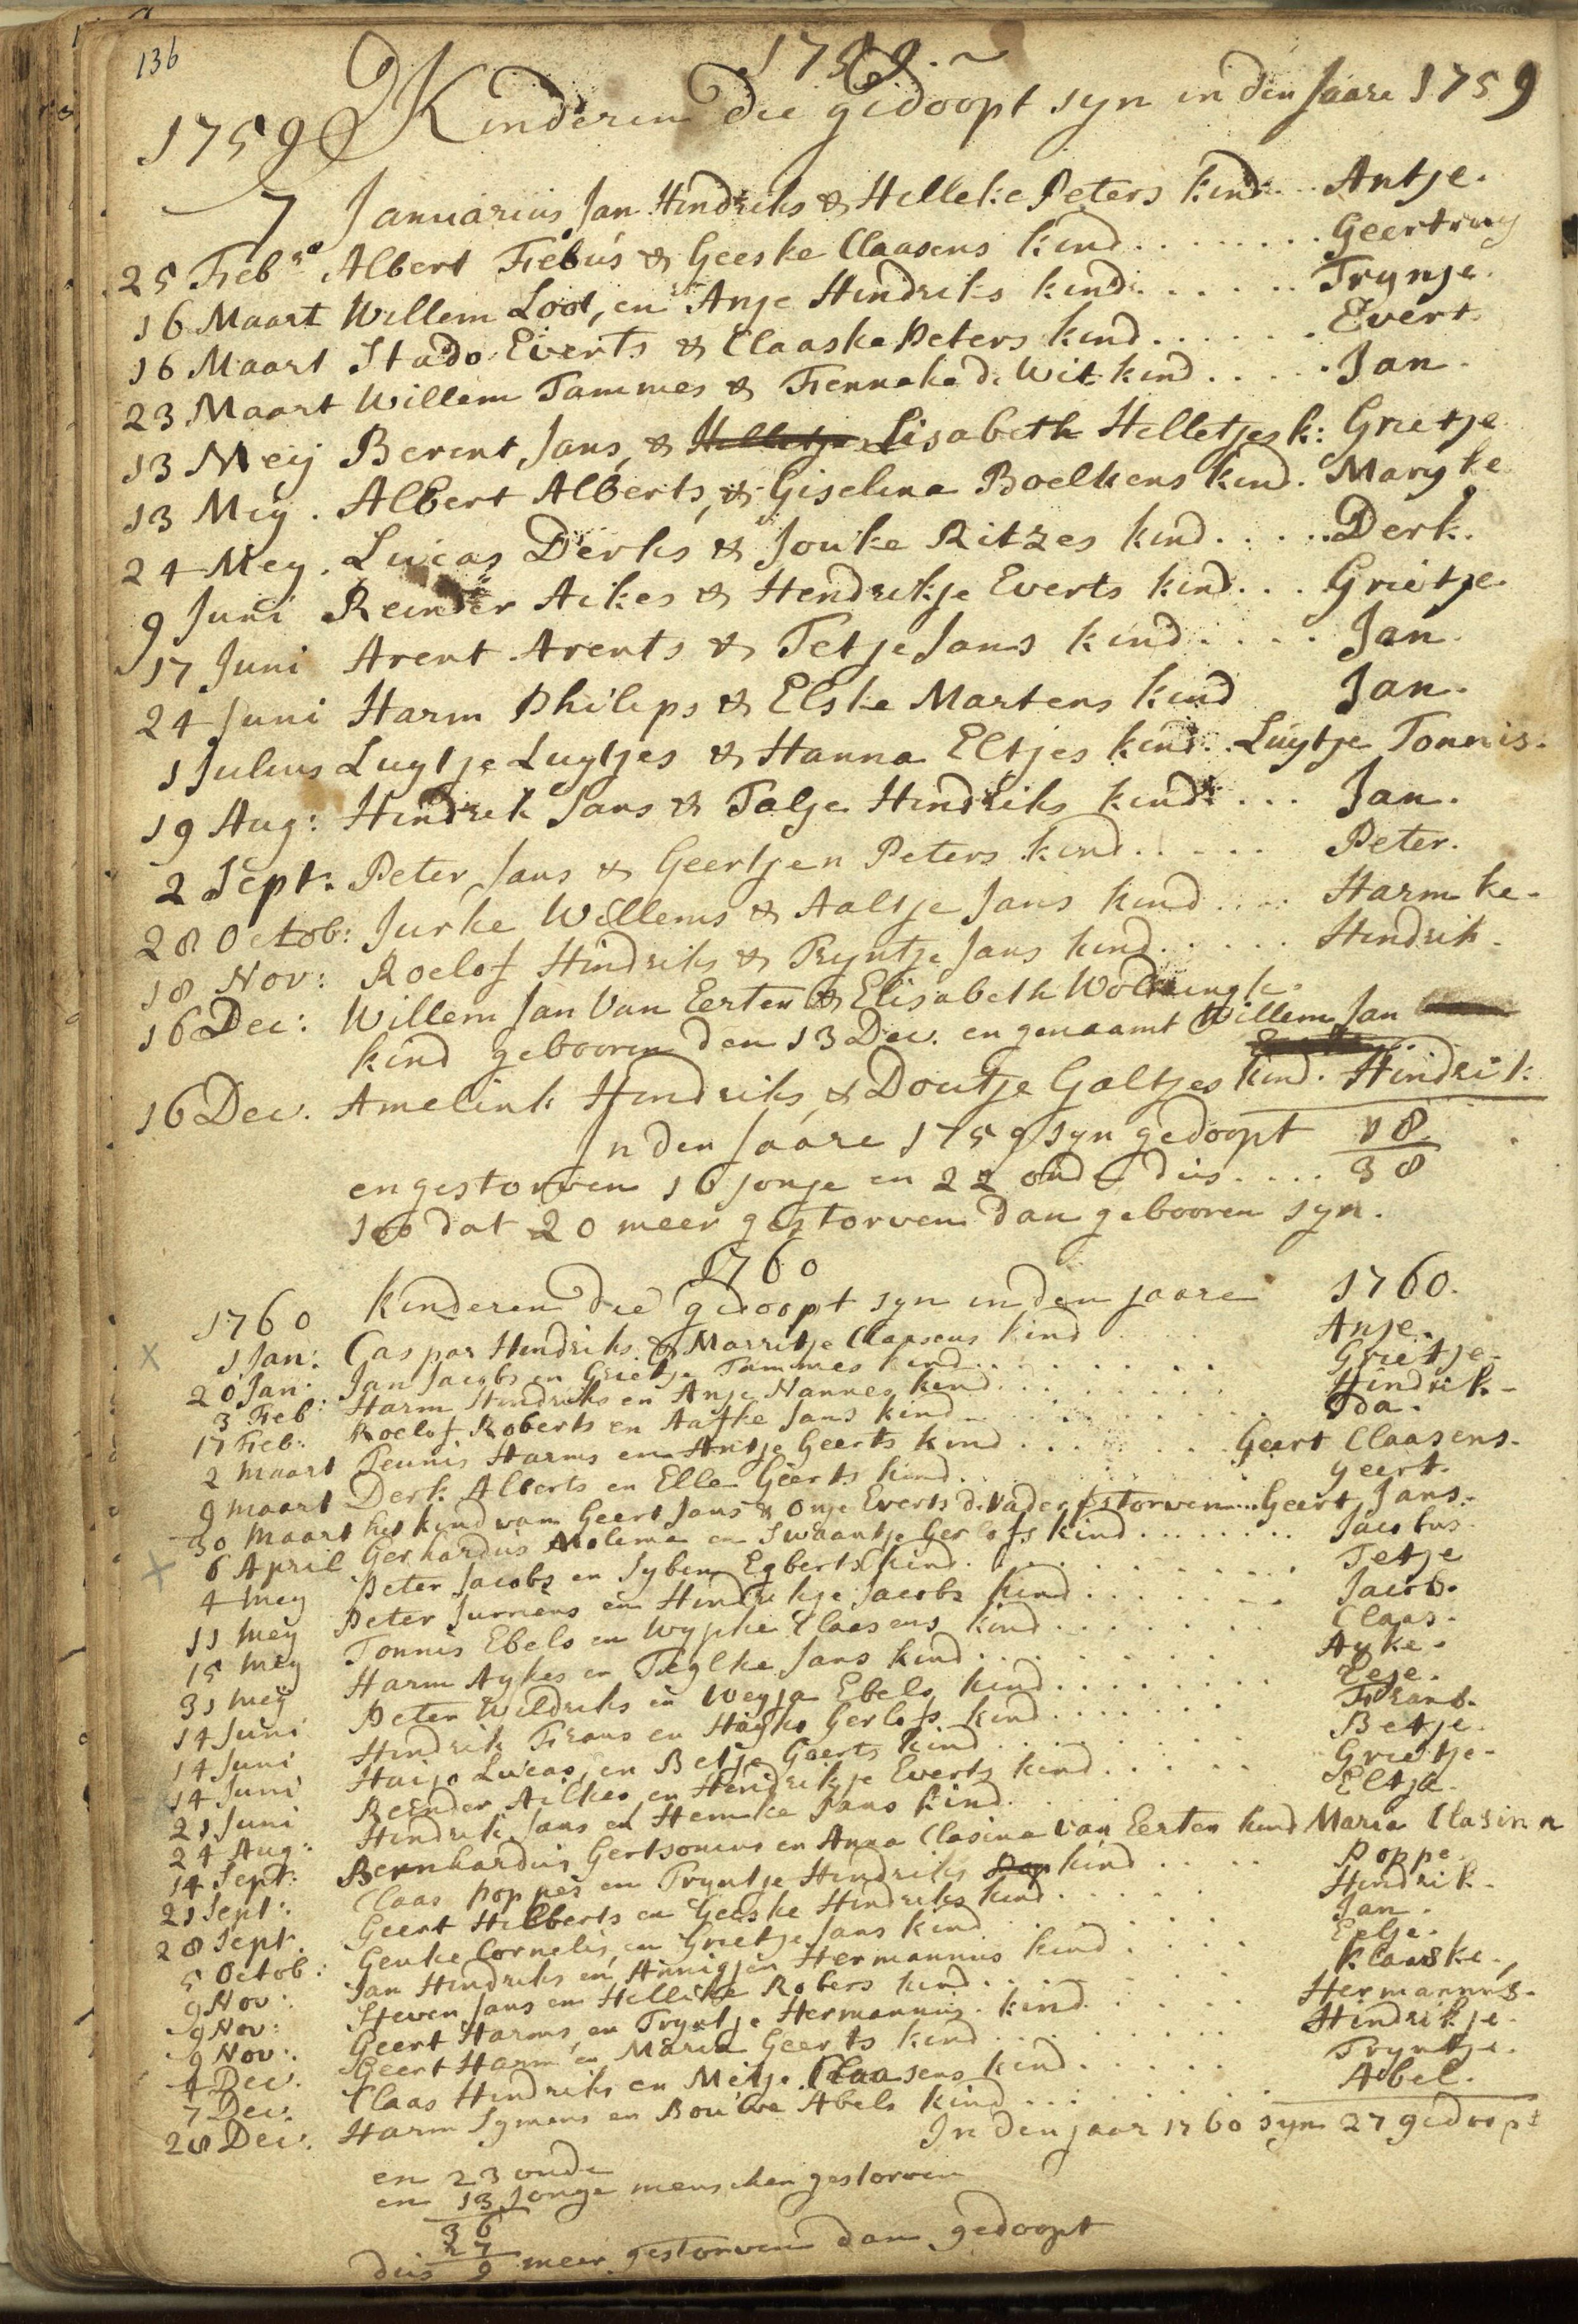 136
1759.
1759 Kinderen die gedoopt syn in den Jaare 1759
7 Januarius Jan Hindriks & Hilleke Peters kind... Antje.
25 Feb. Albert Fiebus & Geeske Claasens kind........ Geertruy
16 Maart Willem Loot, en Anje Hindriks kind...... Trynje.
16 Maart Stado Everts & Claaske Peters kind...... Evert.
23 Maart Willem Tammes & Fenneke d. Wit kind..... Jan.
13 Meij Berent Jans, & Lisabeth Hilletjes k: Grietje
13 Mey. Albert Alberts, & Giselina Boelkens kind. Maryke
24 Mey. Lucas Derks & Jouke Ritzes kind..... Derk.
9 Juni Reinder Aikes & Hendrikje Everts kind... Grietje.
17 Juni Arent Arents & Tetje Jans kind.... Jan.
24 Juni Harm Philips & Elske Martens kind Jan.
1 Julius Luytje Luytjes & Hanna Eltjes kind.. Luytje Tonnis.
19 Aug: Hindrik Jans & Talje Hindriks kind.... Jan.
2 Sept: Peter Jans & Geertjen Peters kind..... Peter.
28 Octob: Jurke Willems & Aaltje Jans kind.... Harmke.
18 Nov: Roelof Hindriks & Tryntje Jans kind...... Hindrik.
16 Dec: Willem Jan Van Eerten & Elisabeth k.
kind gebooren den 13 Dec. en genaamt Willem Jan
16 Dec. Amelink Hindriks, & Doutje Galtjes kind. Hindrik
In den Jaare 1759 syn gedoopt 18
en gestorven 16 jonge en 22 oude dus.... 38
soo dat 20 meer gestorven dan gebooren syn.
1760
1760 Kinderen die gedoopt syn in den jaare 1760.
1 Jan: Caspar Hendriks & Marritje Claasens kind.... Anje.
20 Jan: Jan Jacobs en Grietje Tammes kind........ Grietje.
3 Feb: Harm Hindriks en Anje Hannes kind........ Hindrik.
17 Feb: Roelof Roberts en Aafke Jans kind........ Ida.
2 maart Teunis Harms en Antje Geerts kind........ Geert Claasens.
9 maart Derk Alberts en Elle Geerts kind....... geert.
30 Maart het kind van Geert Jans & Onje Everts d. Vader gestorven... Geert Jans.
6 April Gerhardus Molema en Swaantje Gerlofs kind........ Jacobus
4 mey Peter Jacobs en Syben Egberts kind........ Tetje
11 mey Peter Jurriens en Hindrikje Jacobs kind....... Jacob.
15 mey Tonnis Ebels en Wypke Claasens kind....... Claas.
31 mey Harm Aykes en Jans kind....... Ayke.
14 Juni Peter Wildriks en Weyja Ebels kind........
14 Juni Hindrik Frans en Gerlofs kind....... Frans.
14 Juni Haijo Lucas, en Betje Geerts kind........ Betje.
21 Juni Reender Ailkes, en Hendrikje Everts kind..... Grietje.
24 Aug: Hindrik Jans en Hemke Jans kind..... Eltje.
14 Sept: Bernhardus Gertsonius en Anna Clasina Van Eerten kind Maria Clasina
21 Sept: Claas Poppes en Tryntje Hindriks kind..... Poppe.
28 Sept. Geert Hilberts en Geeske Hindriks kind..... Hindrik.
5 Octob: Geuke Cornelis, en Grietje Jans kind...... Jan.
9 Nov: Jan Hindriks en Annigjen Hermannus kind.... Eelje.
9 Nov: Steven Jans en Hillike Robers kind...... Klaaske.
9 Nov: Geert Harms, en Tryntje Hermannus. kind..... Hermannus.
4 Dec. Geert Harm en Maria Geerts kind........ Hindrikje.
7 Dec. Claas Hindriks en Metje Claasens kind..... Tryntje.
28 Dec. Harm Symens en Abels kind....... Abel.
In den jaar 1760 syn 27 gedoopt
en 23 oude
en 13 Jonge menschen gestorven
36
27
dus 9 meer gestorven dan gedoopt